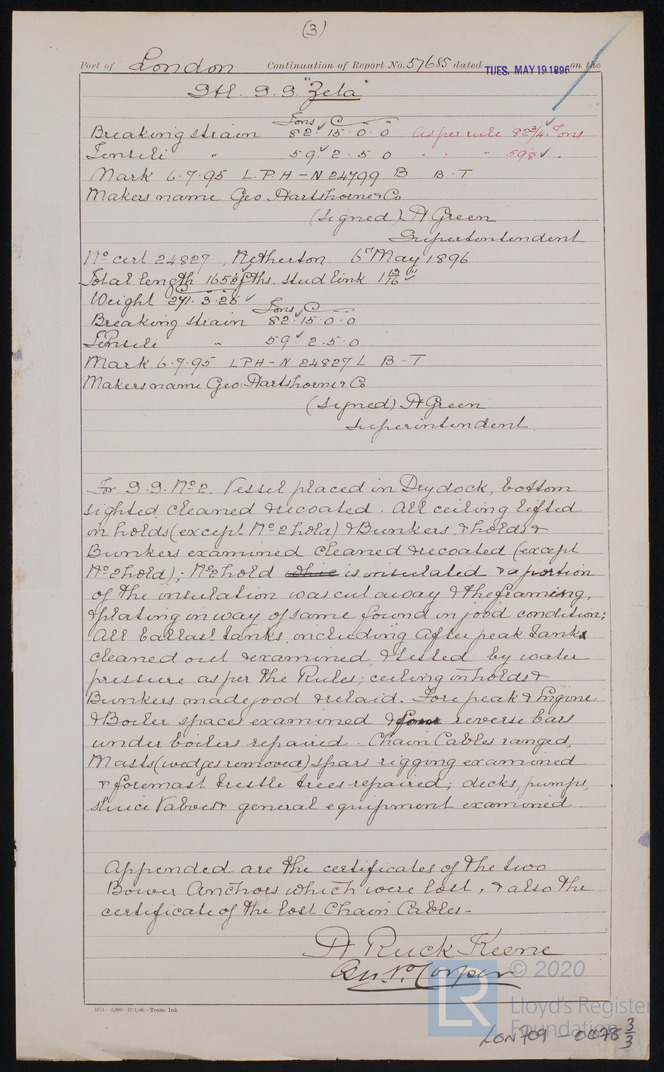 (3)
Port of London Continuation of Report No. 57685 dated TUES. MAY 19 1896 on the
S.S. "Zeta"
Tons C
Breaking strain 82. 15. 0. 0 as per rule 82¾ Tons
Tensile " 59. 2. 5. 0 " " " 59⅛ "
Mark 6.7.95 L.P.H-N 24799 B B-T
Makers name Geo Hartshorne & Co
(Signed) A Green
Superintendent
No cert 24827, Netherton 6th May 1896
Total length 165 fths. stud link
Weight 271.3.26
Tons C
Breaking strain 82.15.0.0
Tensile " 59. 2.5.0
Mark 6.7.95 LPH-N 24827 L B-T
Makers name Geo Hartshorne & Co
(Signed) A Green
Superintendent.
For S.S. No 2. Vessel placed in Dry dock, bottom
sighted cleaned & recoated. All ceiling lifted
in holds (except No 2 hold) & Bunkers, & holds &
Bunkers examined cleaned & recoated (except
No 2 hold); No 2 hold is insulated & a portion
of the insulation was cut away & the framing,
& plating in way of same found in good condition;
All ballast tanks, including after peak tank
cleaned out & examined, & tested by water
pressure as per the Rules; ceiling in holds &
Bunkers made good & relaid. Fore peak & Engine
& Boiler spaces examined & four reverse bars
under boilers repaired. Chain Cables ranged,
Masts (wedges removed) spars rigging examined
& foremast trestle trees repaired; decks, pumps,
sluice valves & general equipment examined
Appended are the certificates of the two
Bower Anchors which were lost, & also the
certificate of the lost Chain Cables-
A Ruck Keene
© 2020
LR
Lloyd's Register
Foundation
LON709-0078 3/3